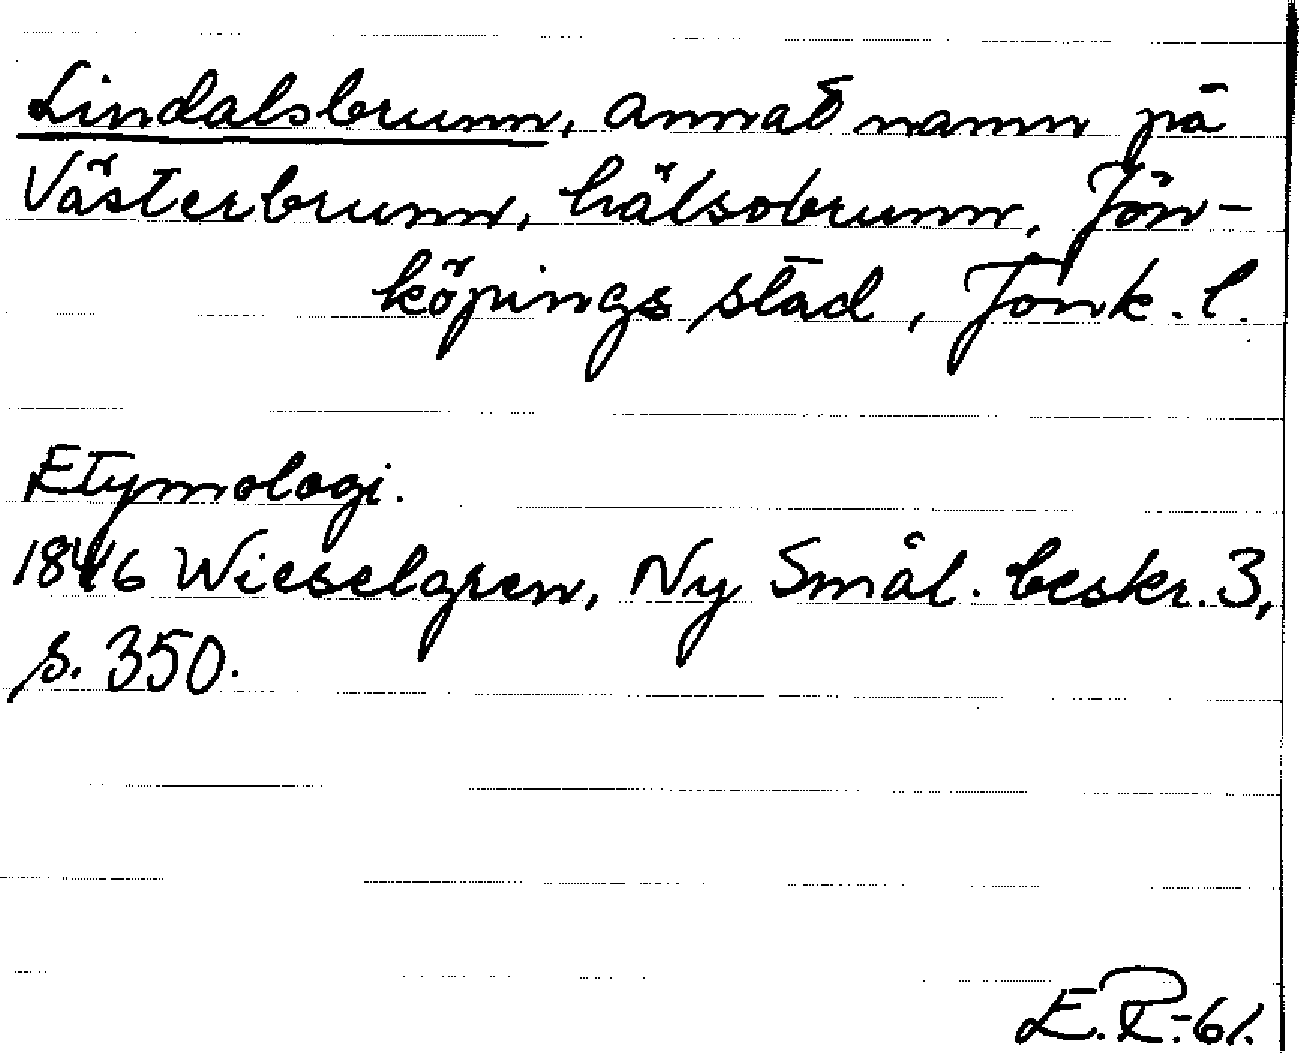 Lindalsbrunn, annat namn på
Västerbrunn, hälsobrunn, Jön-
köpings stad, Jönk. l.
Etymologi.
1846 Wieselgren, Ny Smål. beskr. 3,
s. 350.
E.R.-61.